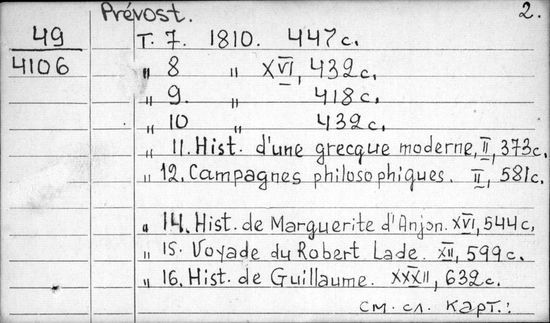 Prévost. 2.
49 T. 7. 1810. 447 c.
4106 " 8 " XVI, 432 c.
" 9. " 418 c.
" 10 " 432 c.
" 11. Hist. d'une grecque moderne, II, 373 c.
" 12. Campagnes philosophiques. II, 581 c.
" 14. Hist. de Marguerite d'Anjon. XVI, 544 c.
" 15. Voyade du Robert Lade. XII, 599 c.
" 16. Hist. de Guillaume. XXXII, 632 c.
см. сл. карт.: